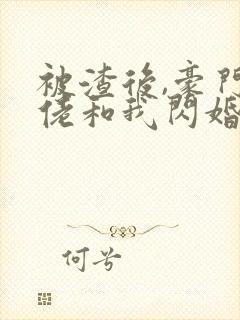 被渣後,豪門
佬和我閃婚
何兮